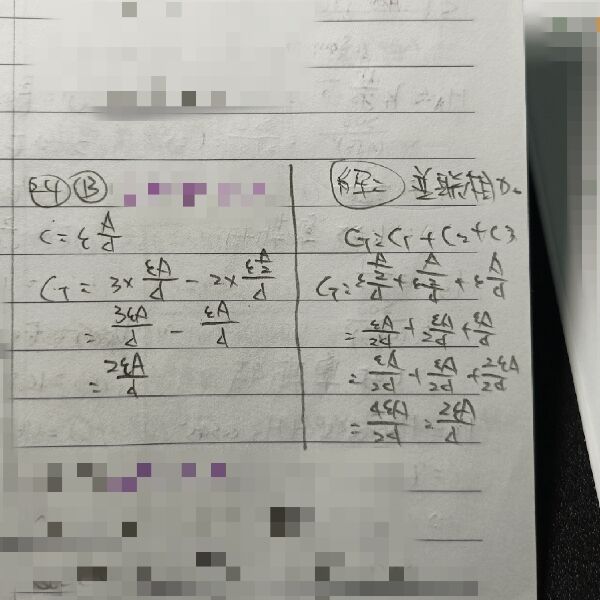 64 B
C = ε A/d
C_T = 3 × εA/d − 2 × ε(A/2)/d
= 3εA/d − εA/d
= 2εA/d
解二 並聯
C_T = C_1 + C_2 + C_3
C_T = ε(A/2)/d + ε(A/2)/d + ε A/d
= εA/2d + εA/2d + εA/d
= εA/2d + εA/2d + 2εA/2d
= 4εA/2d = 2εA/d